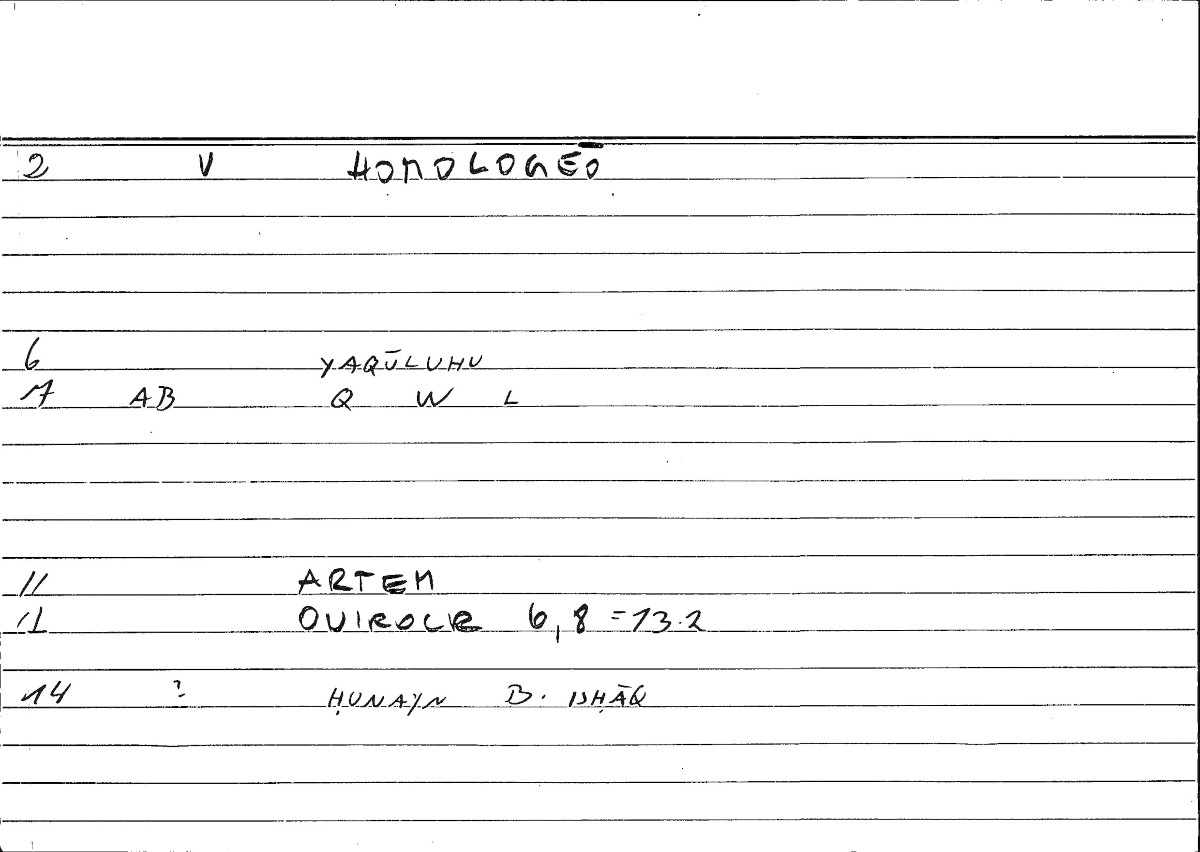 2 V HOMOLOGEŌ
6 YAQŪLUHU
7 AB Q W L
11 ARTEM
12 OVIROCR 6,8 = 13.2
14 ? ḤUNAYN B. ISḤĀQ